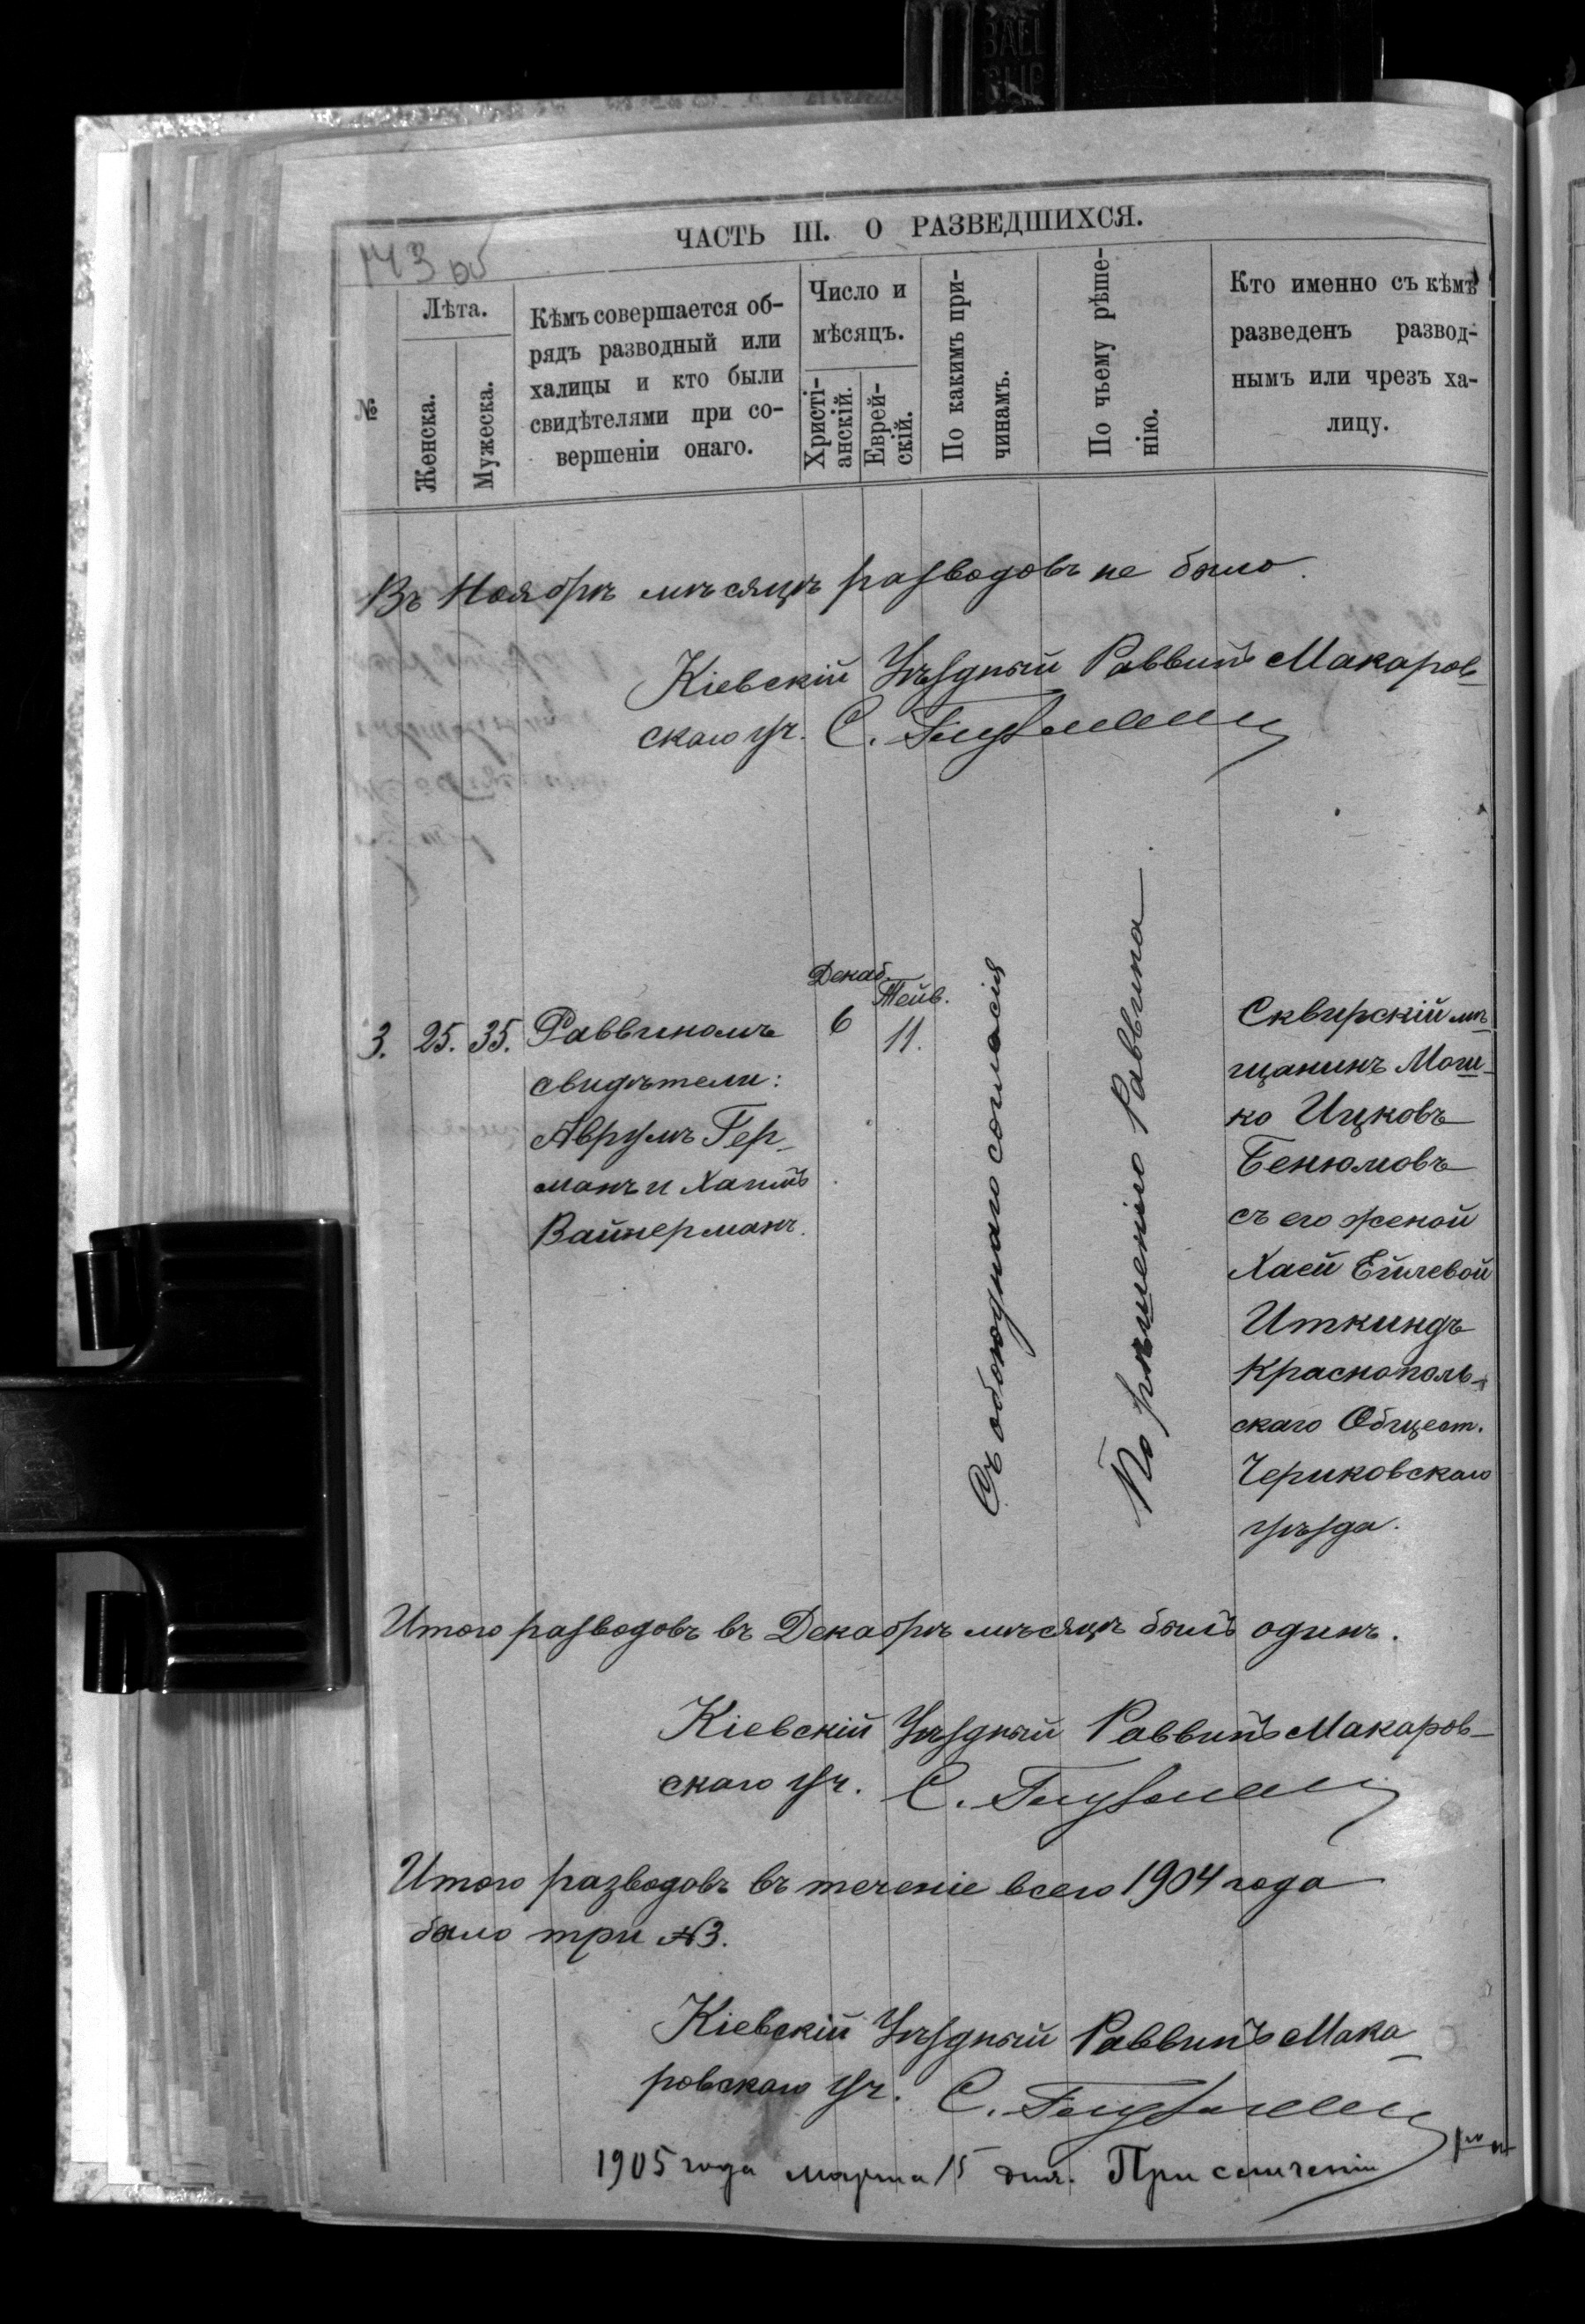 ЧАСТЬ III. О РАЗВЕДШИХСЯ.
143 об
№
Лѣта.
Женска.
Мужеска.
Кѣмъ совершается об-
рядъ разводный или
халицы и кто были
свидѣтелями при со-
вершеніи онаго.
Число и
мѣсяцъ.
Христі-
анскій.
Еврей-
скій.
По какимъ при-
чинамъ.
По чьему рѣше-
нію.
Кто именно съ кѣмъ
разведенъ развод-
нымъ или чрезъ ха-
лицу.
Въ Ноябрѣ мѣсяцѣ разводовъ не было.
Кіевскій Уѣздный Раввинъ Макаров-
скаго уч. С.
3. 25. 35.
Раввиномъ
свидѣтели:
Аврумъ Гер-
манъ и Хаимъ
Вайнерманъ.
Декаб.
6
Тейв.
11.
Съ обоюднаго согласія
По рѣшенію Раввина
Сквирскій мѣ-
щанинъ Мош-
ко Ицковъ
Бенюмовъ
съ его женой
Хаей Ейлевой
Иткиндъ
Краснополь-
скаго Общест.
Чериковскаго
уѣзда.
Итого разводовъ въ Декабрѣ мѣсяцѣ былъ одинъ.
Кіевскій Уѣздный Раввинъ Макаров-
скаго уч. С.
Итого разводовъ въ теченіе всего 1904 года
было три №3.
Кіевскій Уѣздный Раввинъ Мака-
ровскаго уч. С.
1905 года марта 15 дня. При сличеніи